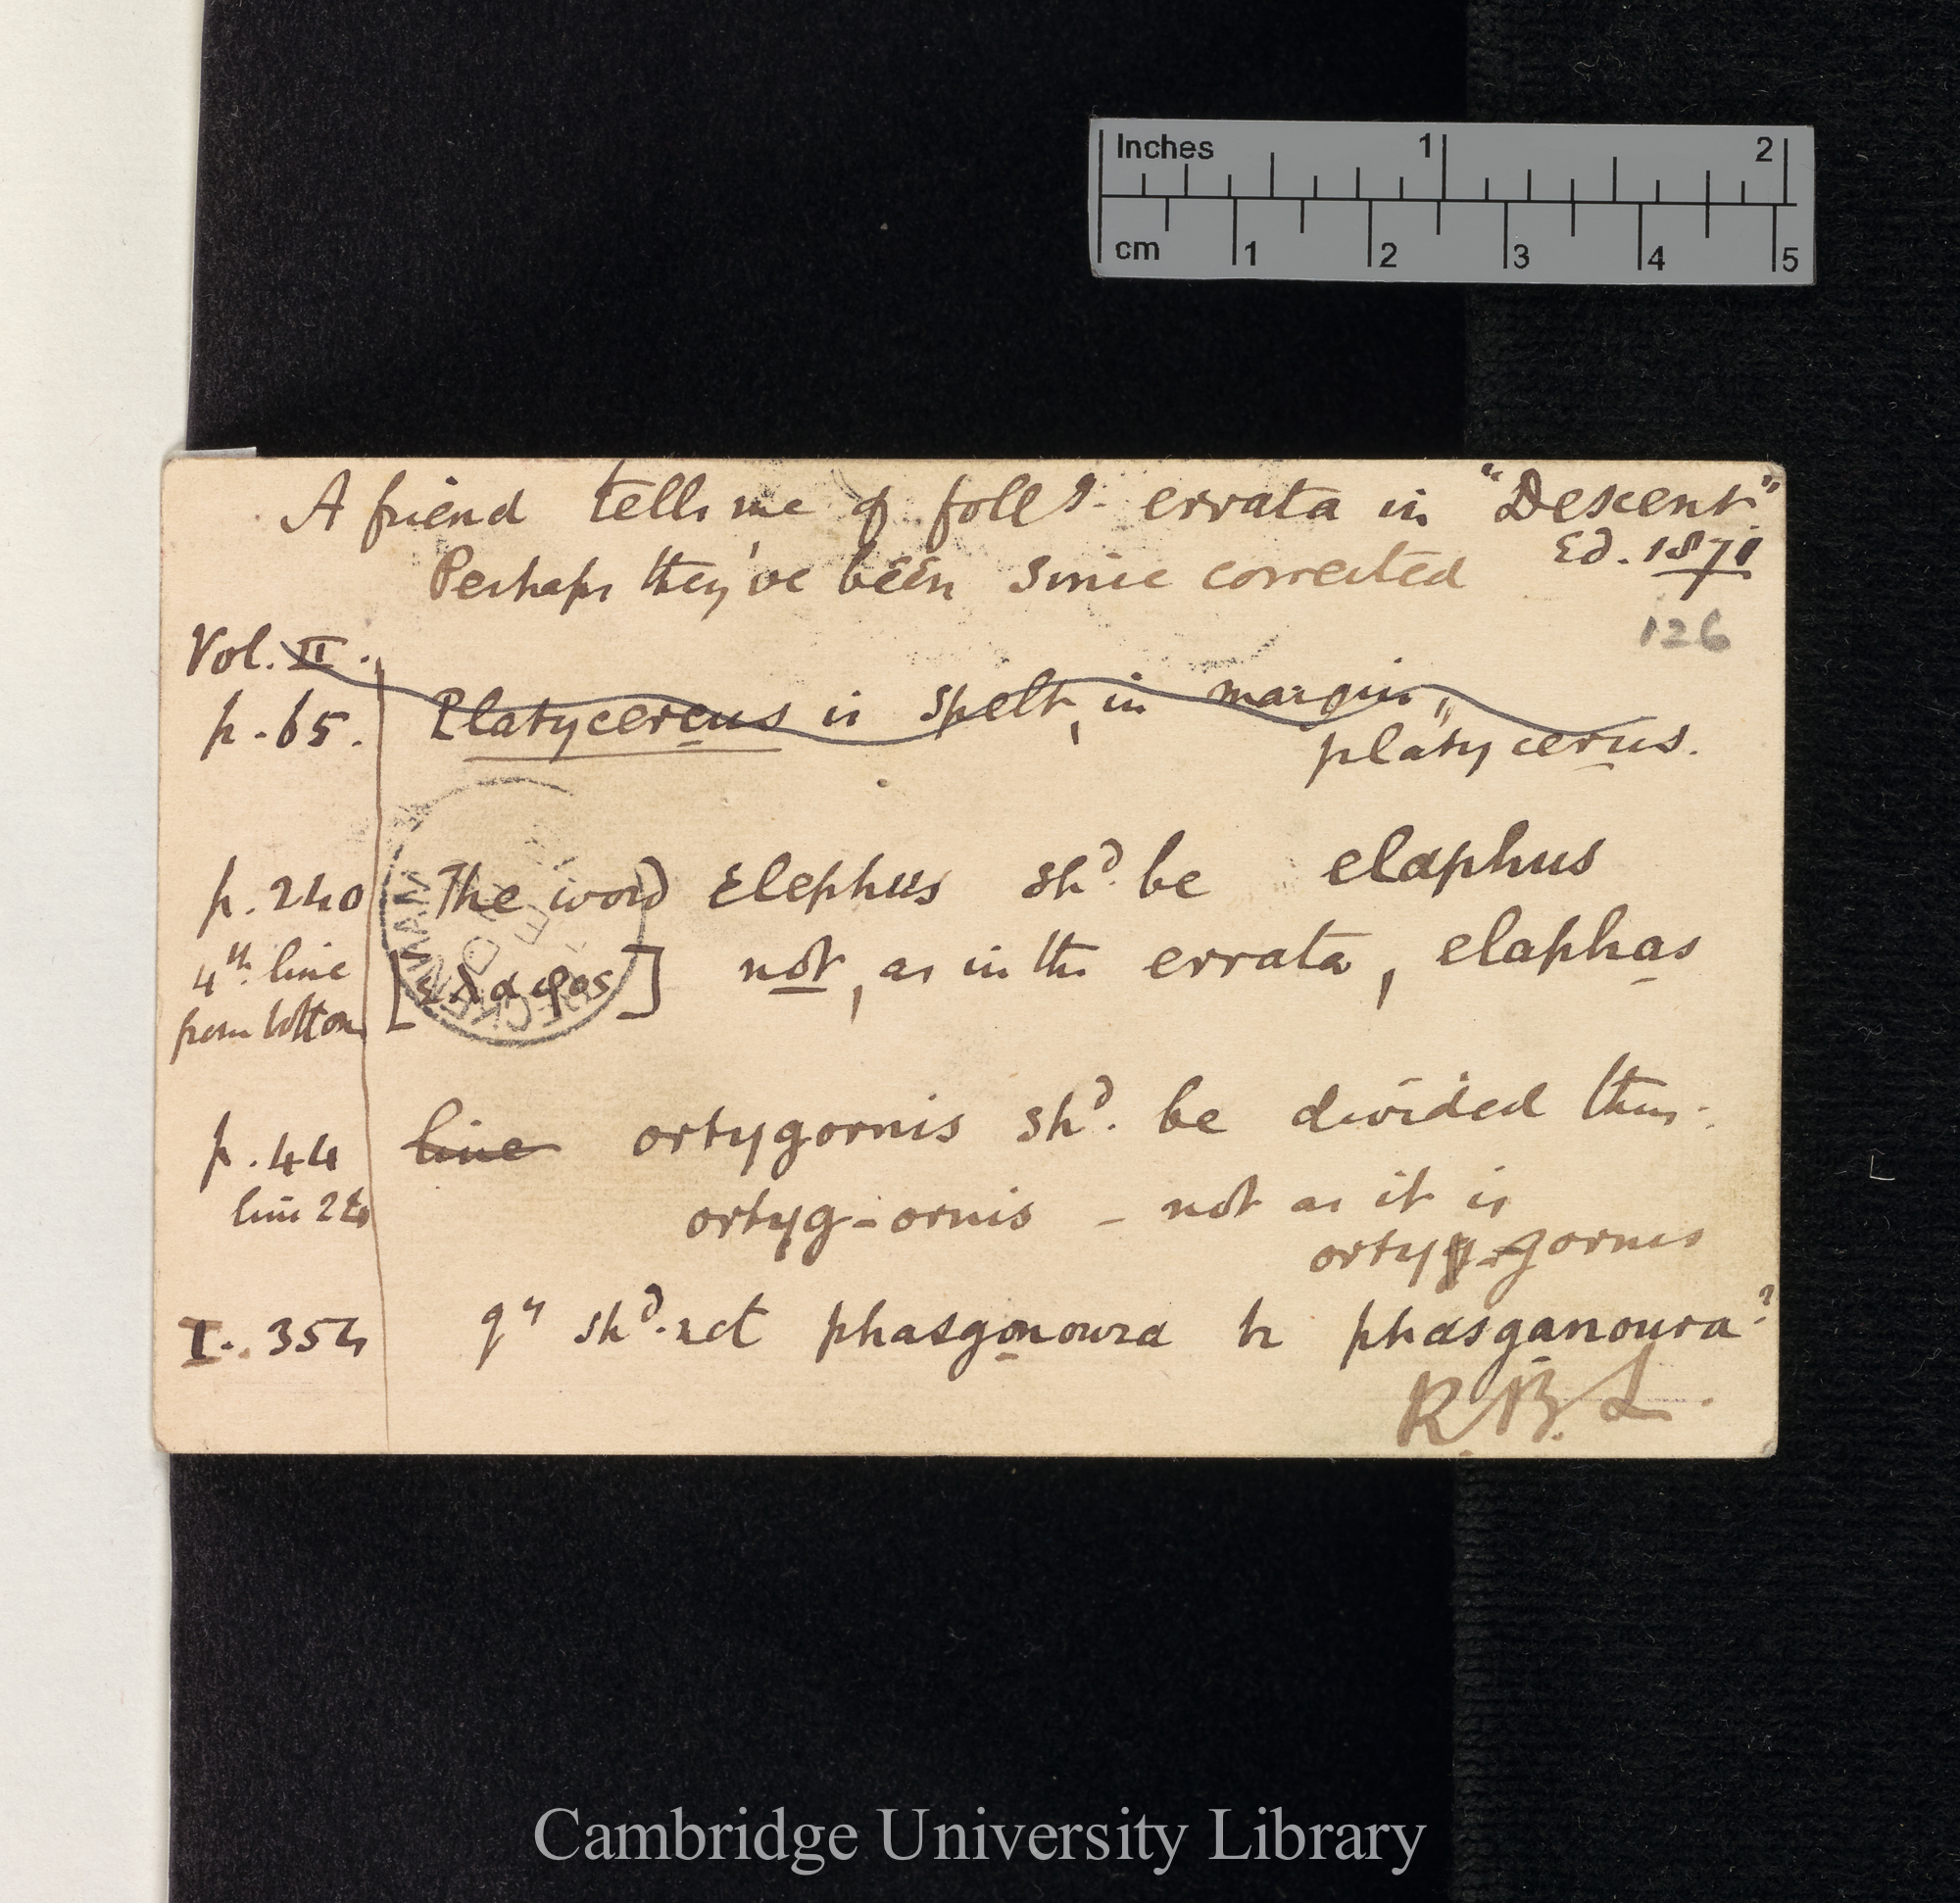 Inches 1 2
cm 1 2 3 4 5
A friend tells me of follg. errata in "Descent"
Ed. 1871
Perhaps they've been since corrected
126
Vol. II.
p. 65. Platycercus is spelt, in margin,
platycerus.
p. 240 The word Elephus shd. be elaphus
4th. line [ελαφος] not, as in the errata, elaphas
from bottom
p. 44 line ortygornis shd. be divided thus:
line 24 ortyg-ornis - not as it is
orty-gornis
I. 354 qy shd. not phasgonoura be phasganoura?
R.B.L.
Cambridge University Library